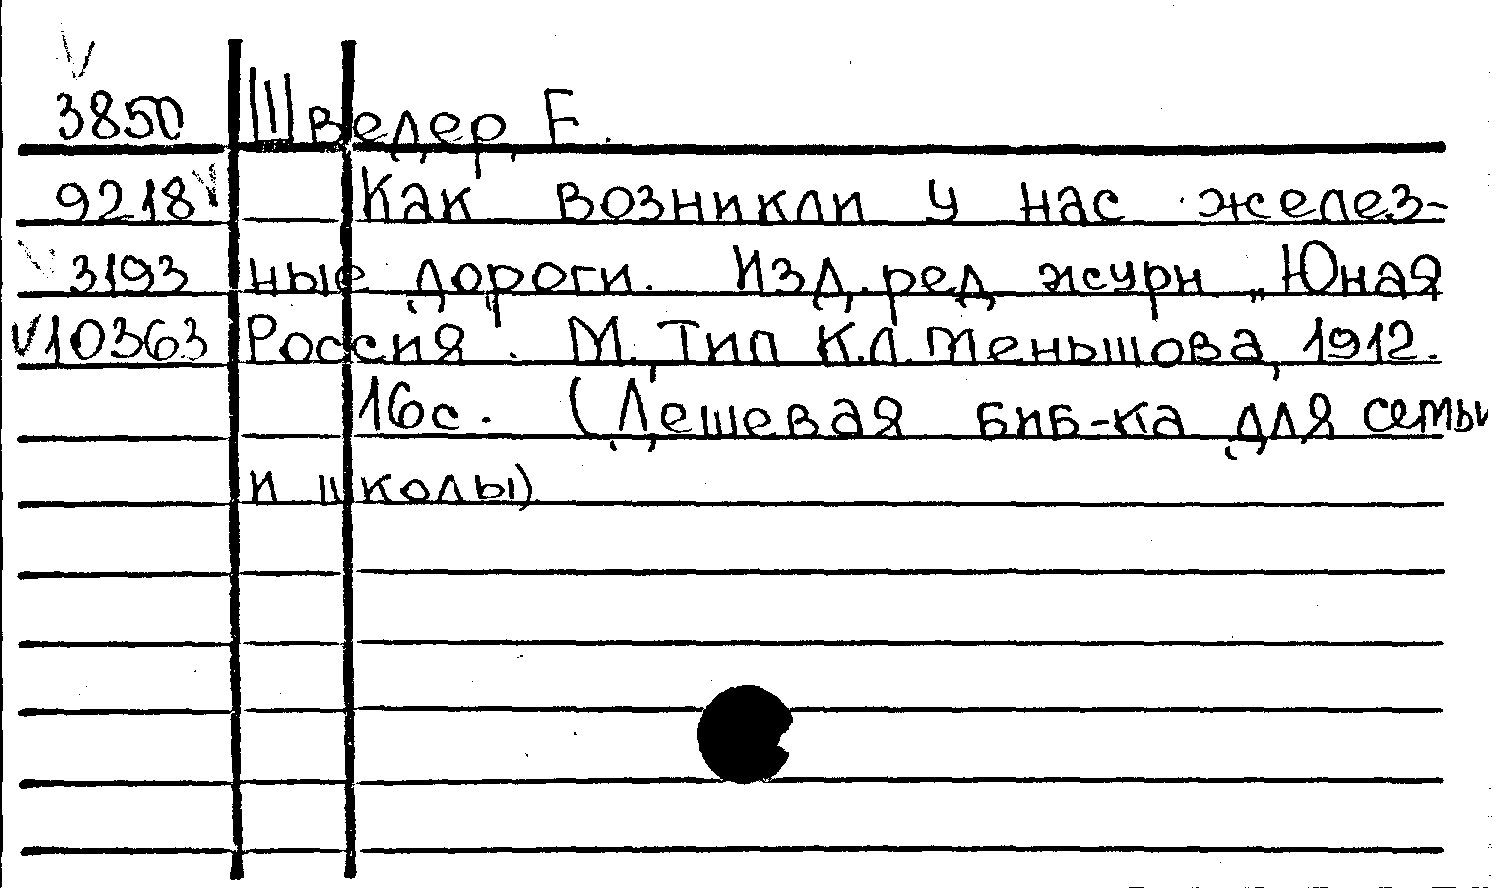 3850 Шведер, Е.
9218 Как возникли у нас желез-
3193 ные дороги. Изд. ред журн „Юная
V10363 Россия". М. Тип К.Л. Меньшова, 1912.
16с. (Дешевая биб-ка для семьи
и школы)